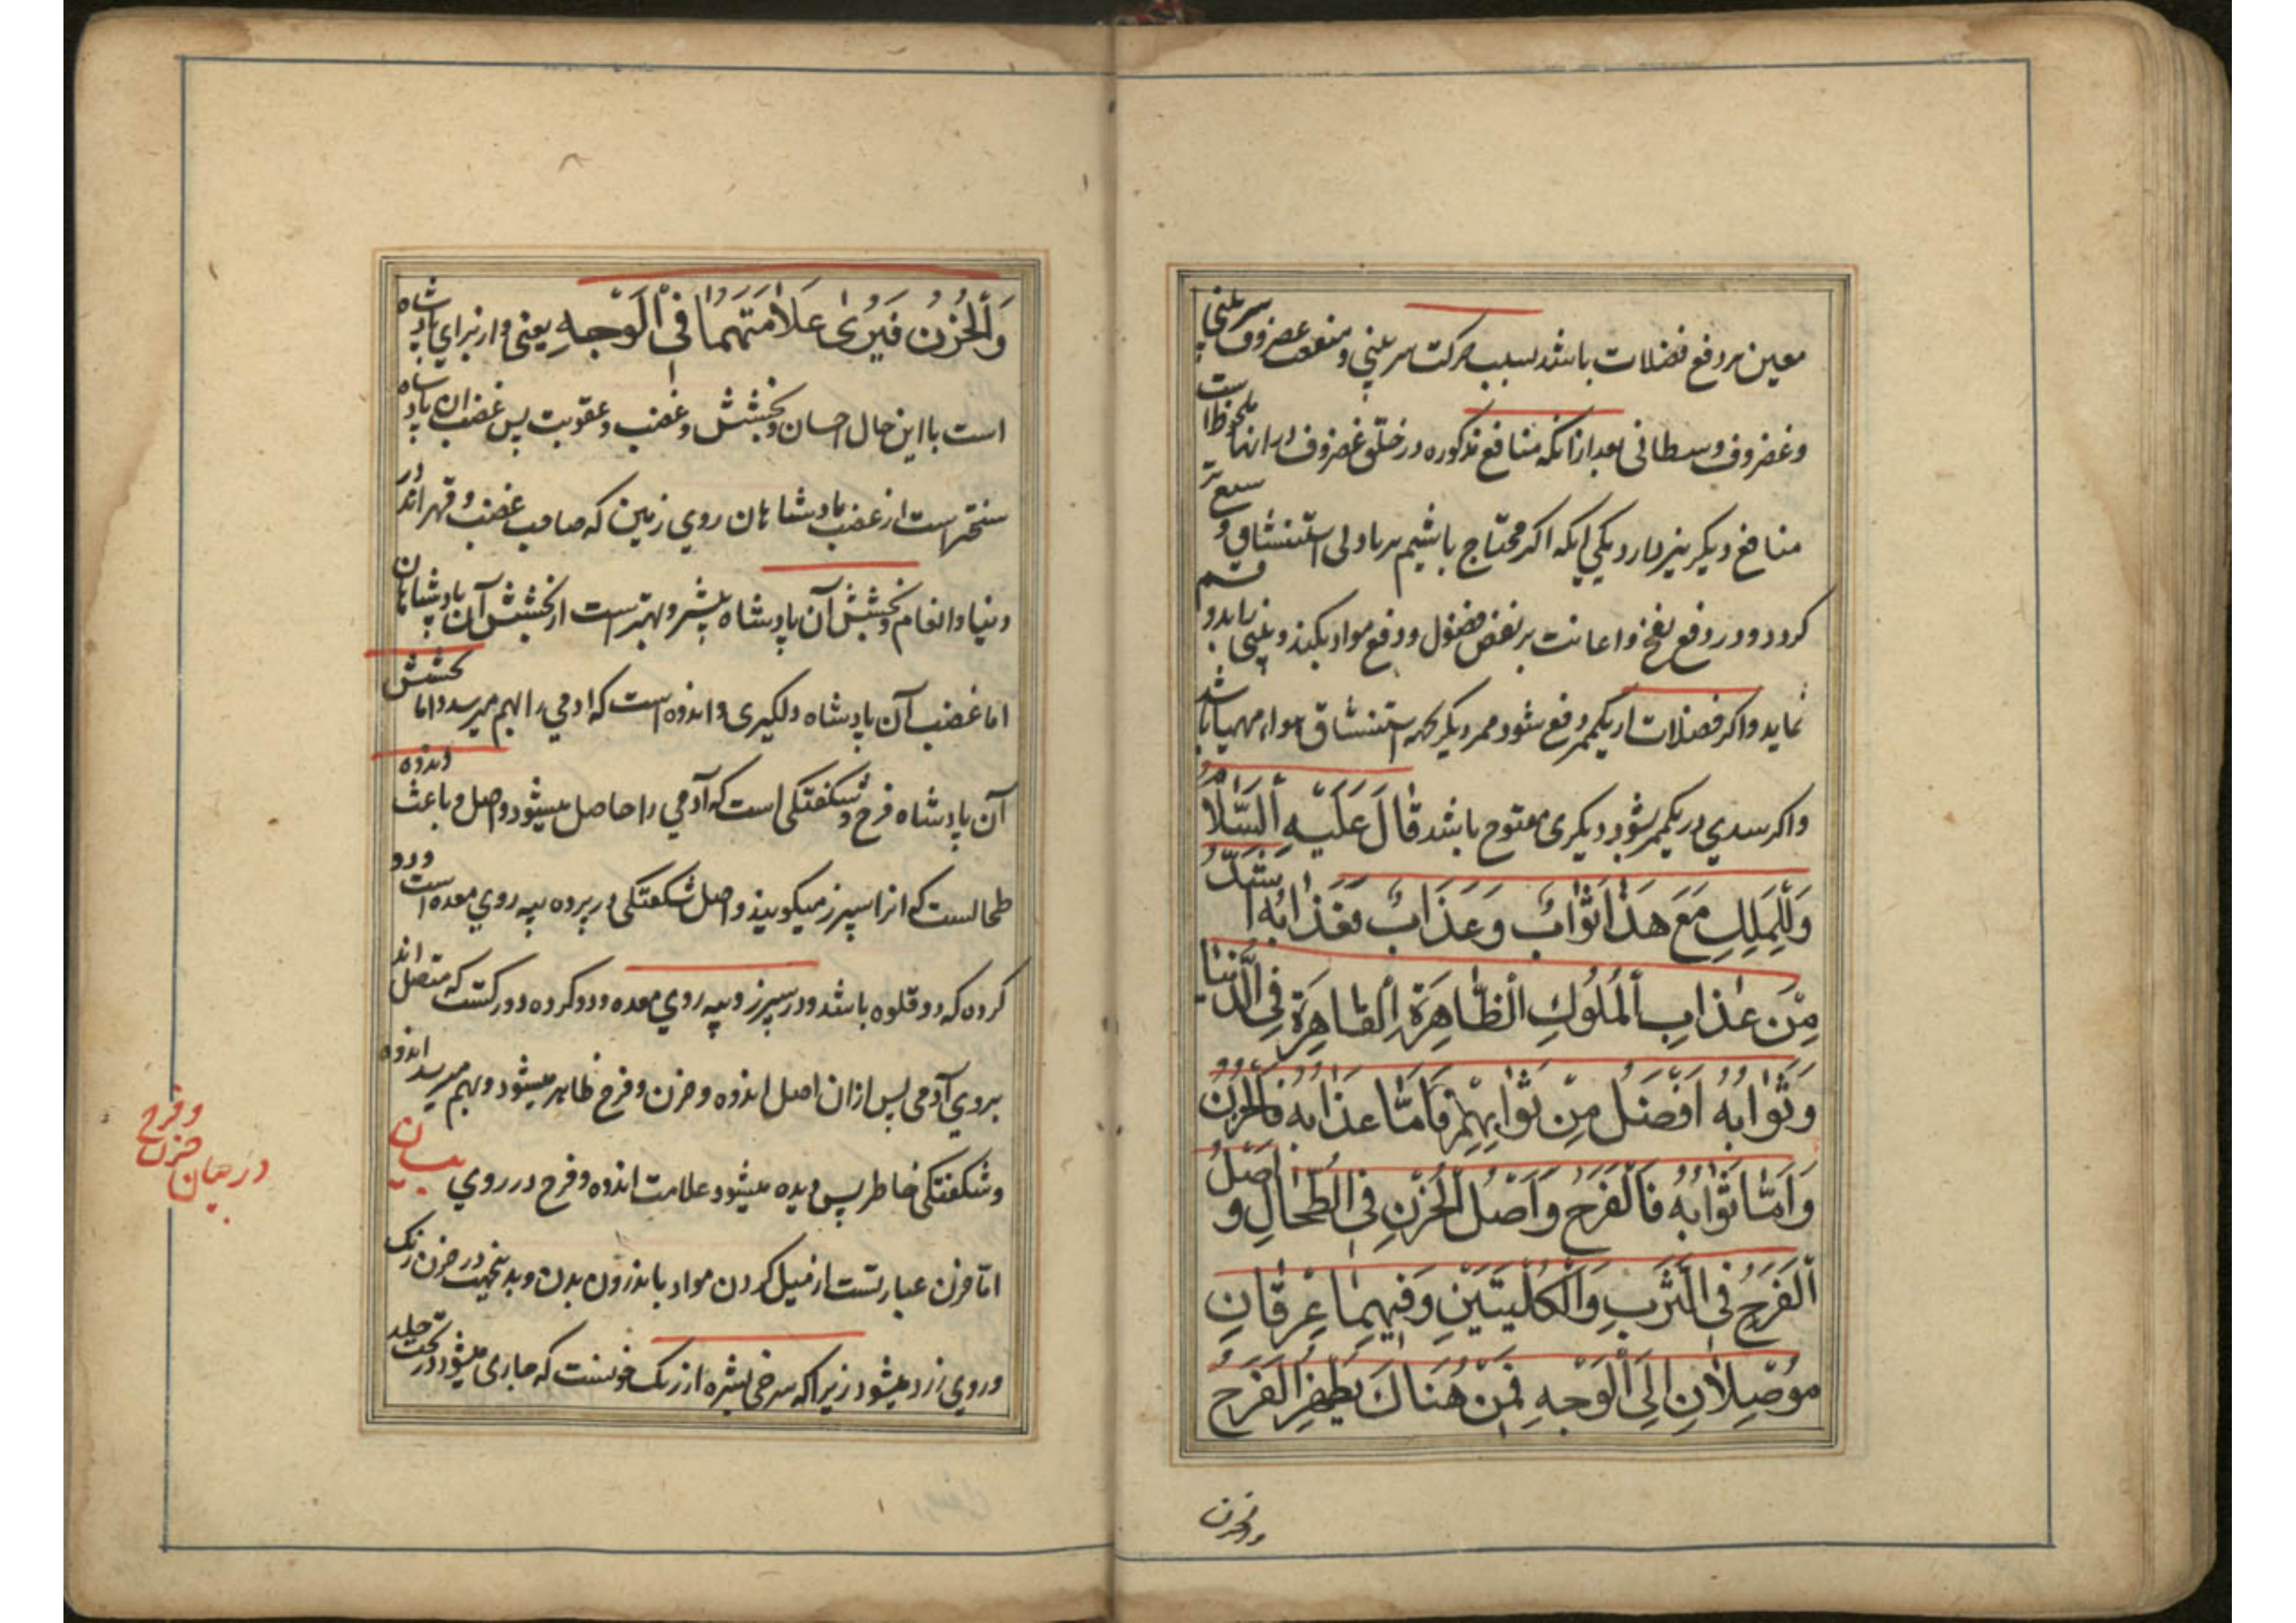 معین بر دفع فضلات باشد بسبب حرکت سر بینی و منفعت غضروف سر بینی
و غضروف وسطانی بعد از انکه منافع مذکوره در خلق غضروف در انها ملحوظ است
منافع دیگر نیز دارد یکی انکه اگر محتاج باشیم بر بادلی استنشاق و سریع تر
کردد و در دفع نفخ و اعانت بر نفض فضول و دفع مواد یکبند و بینی
نماید و اکر فضلات از یکممر دفع شود ممر دیگر بجهه استنشاق هوا مهیا باشد
و اکر سدی در یکممر شود دیکری مفتوح باشد قَالَ عَلَيْهِ السَّلَامُ
وَلِلْمَلِكِ مَعَ هَذَا ثَوَابٌ وَعَذَابٌ فَعَذَابُهُ أَشَدُّ
مِنْ عَذَابِ الْمُلُوكِ الظَّاهِرَةِ الْقَاهِرَةِ فِي الدُّنْيَا
وَثَوَابُهُ أَفْضَلُ مِنْ ثَوَابِهِمْ فَأَمَّا عَذَابُهُ فَالْحُزْنُ
وَأَمَّا ثَوَابُهُ فَالْفَرَحُ وَأَصْلُ الْحُزْنِ فِي الطِّحَالِ وَ أَصْلُ
الْفَرَحِ فِي الثَّرْبِ وَالْكُلْيَتَيْنِ وَفِيهِمَا عِرْقَانِ
مُوصِلَانِ إِلَى الْوَجْهِ فَمِنْ هُنَاكَ يَظْهَرُ الْفَرَحُ
والحزن
وَالْحُزْنُ فَيُرَى عَلَامَتُهُمَا فِي الْوَجْهِ یعنی و از برای پادشاه
است با این حال احسان و بخشش و غضب و عقوبت پس غضب ان پادشاه
سختر است از غضب پادشاهان روی زمین که صاحب غضب و قهر اند در
دنیا و انعام و بخشش آن پادشاه بیشتر و بهتر است از بخشش آن پادشاهان
اما غضب آن پادشاه دلکیری و اندوه است که ادمی را بهم میرسد و اما بخشش
آن پادشاه فرح و شکفتکی است که آدمی را حاصل میشود و اصل و باعث اندوه
طحالست که انرا سپرز میکویند و اصل شکفتکی در پرده پیه روی معده است و دو
کرده که دو قلوه باشد و در سپرز و پیه روی معده و دو کرده دو رکست که متصل اند
بروی آدمی پس از ان اصل اندوه و حزن و فرح ظاهر میشود و بهم میرسد اندوه
و شکفتکی خاطر پس دیده میشود علامت اندوه و فرح در روی بیان
اما حزن عبارتست از میل کردن مواد باندرون بدن و بدینجهت در حزن رنک
و روی زرد میشود زیرا که سرخی بشره از رنک خونست که جاری میشود در تحت جلد
در بیان حزن و فرح